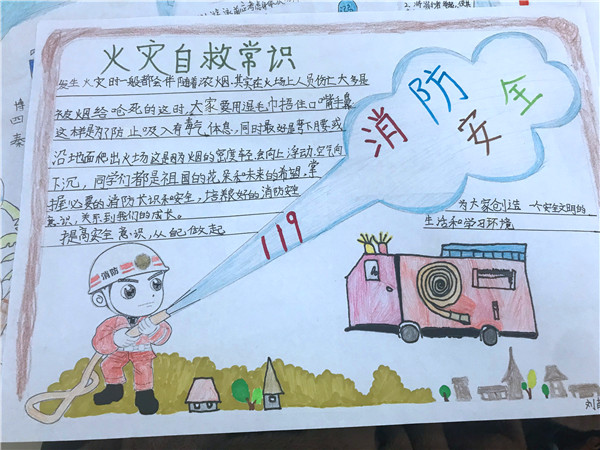 火灾自救常识
发生火灾时一般都会伴随着浓烟,其实在火场上人员伤亡大多是
被烟给呛死的这时大家要用湿毛巾捂住口嘴鼻
这样是为了防止吸入有毒气体息,同时最好是弯下腰或
沿地面爬出火场这是因为烟的密度轻,会向上浮动,空气向
下沉,同学们都是祖国的花朵和未来的希望,掌
握必要的消防大识和安全,培养良好的消防安全
意识,关系到我们的成长。
提高安全意识,从自己做起
消防安全
119
为大家创造一个安全文明的
生活和学习环境
消防
博
四
秦
刘